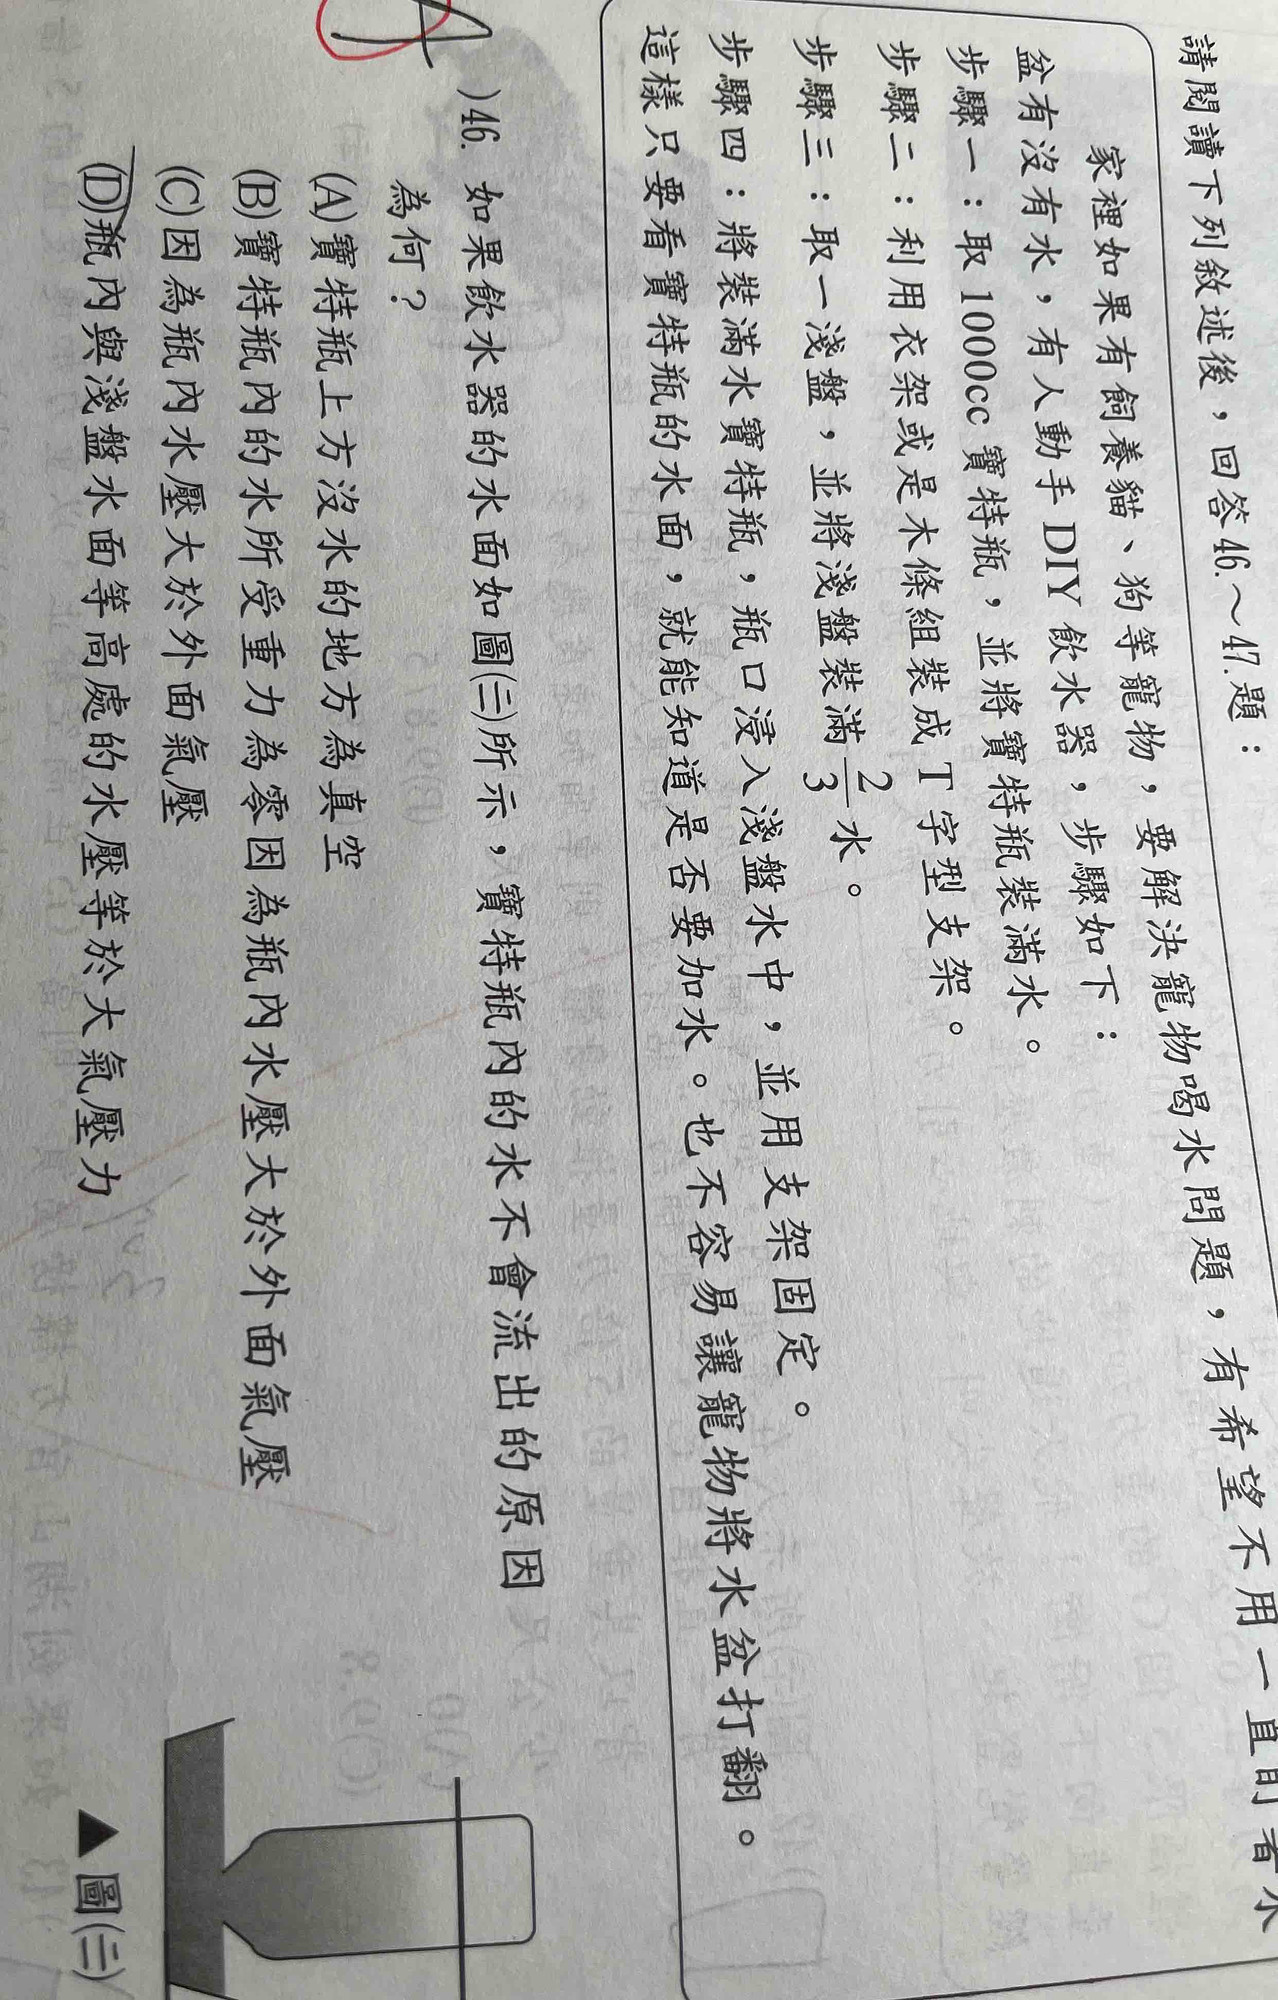 請閱讀下列敘述後，回答46.～47.題：
家裡如果有飼養貓、狗等寵物，要解決寵物喝水問題，有希望不用一直盯著水
盆有沒有水，有人動手DIY飲水器，步驟如下：
步驟一：取1000cc寶特瓶，並將寶特瓶裝滿水。
步驟二：利用衣架或是木條組裝成T字型支架。
步驟三：取一淺盤，並將淺盤裝滿2/3水。
步驟四：將裝滿水寶特瓶，瓶口浸入淺盤水中，並用支架固定。
這樣只要看寶特瓶的水面，就能知道是否要加水。也不容易讓寵物將水盆打翻。
)46. 如果飲水器的水面如圖(三)所示，寶特瓶內的水不會流出的原因
為何？
(A)寶特瓶上方沒水的地方為真空
(B)寶特瓶內的水所受重力為零因為瓶內水壓大於外面氣壓
(C)因為瓶內水壓大於外面氣壓
(D)瓶內與淺盤水面等高處的水壓等於大氣壓力
▲圖(三)